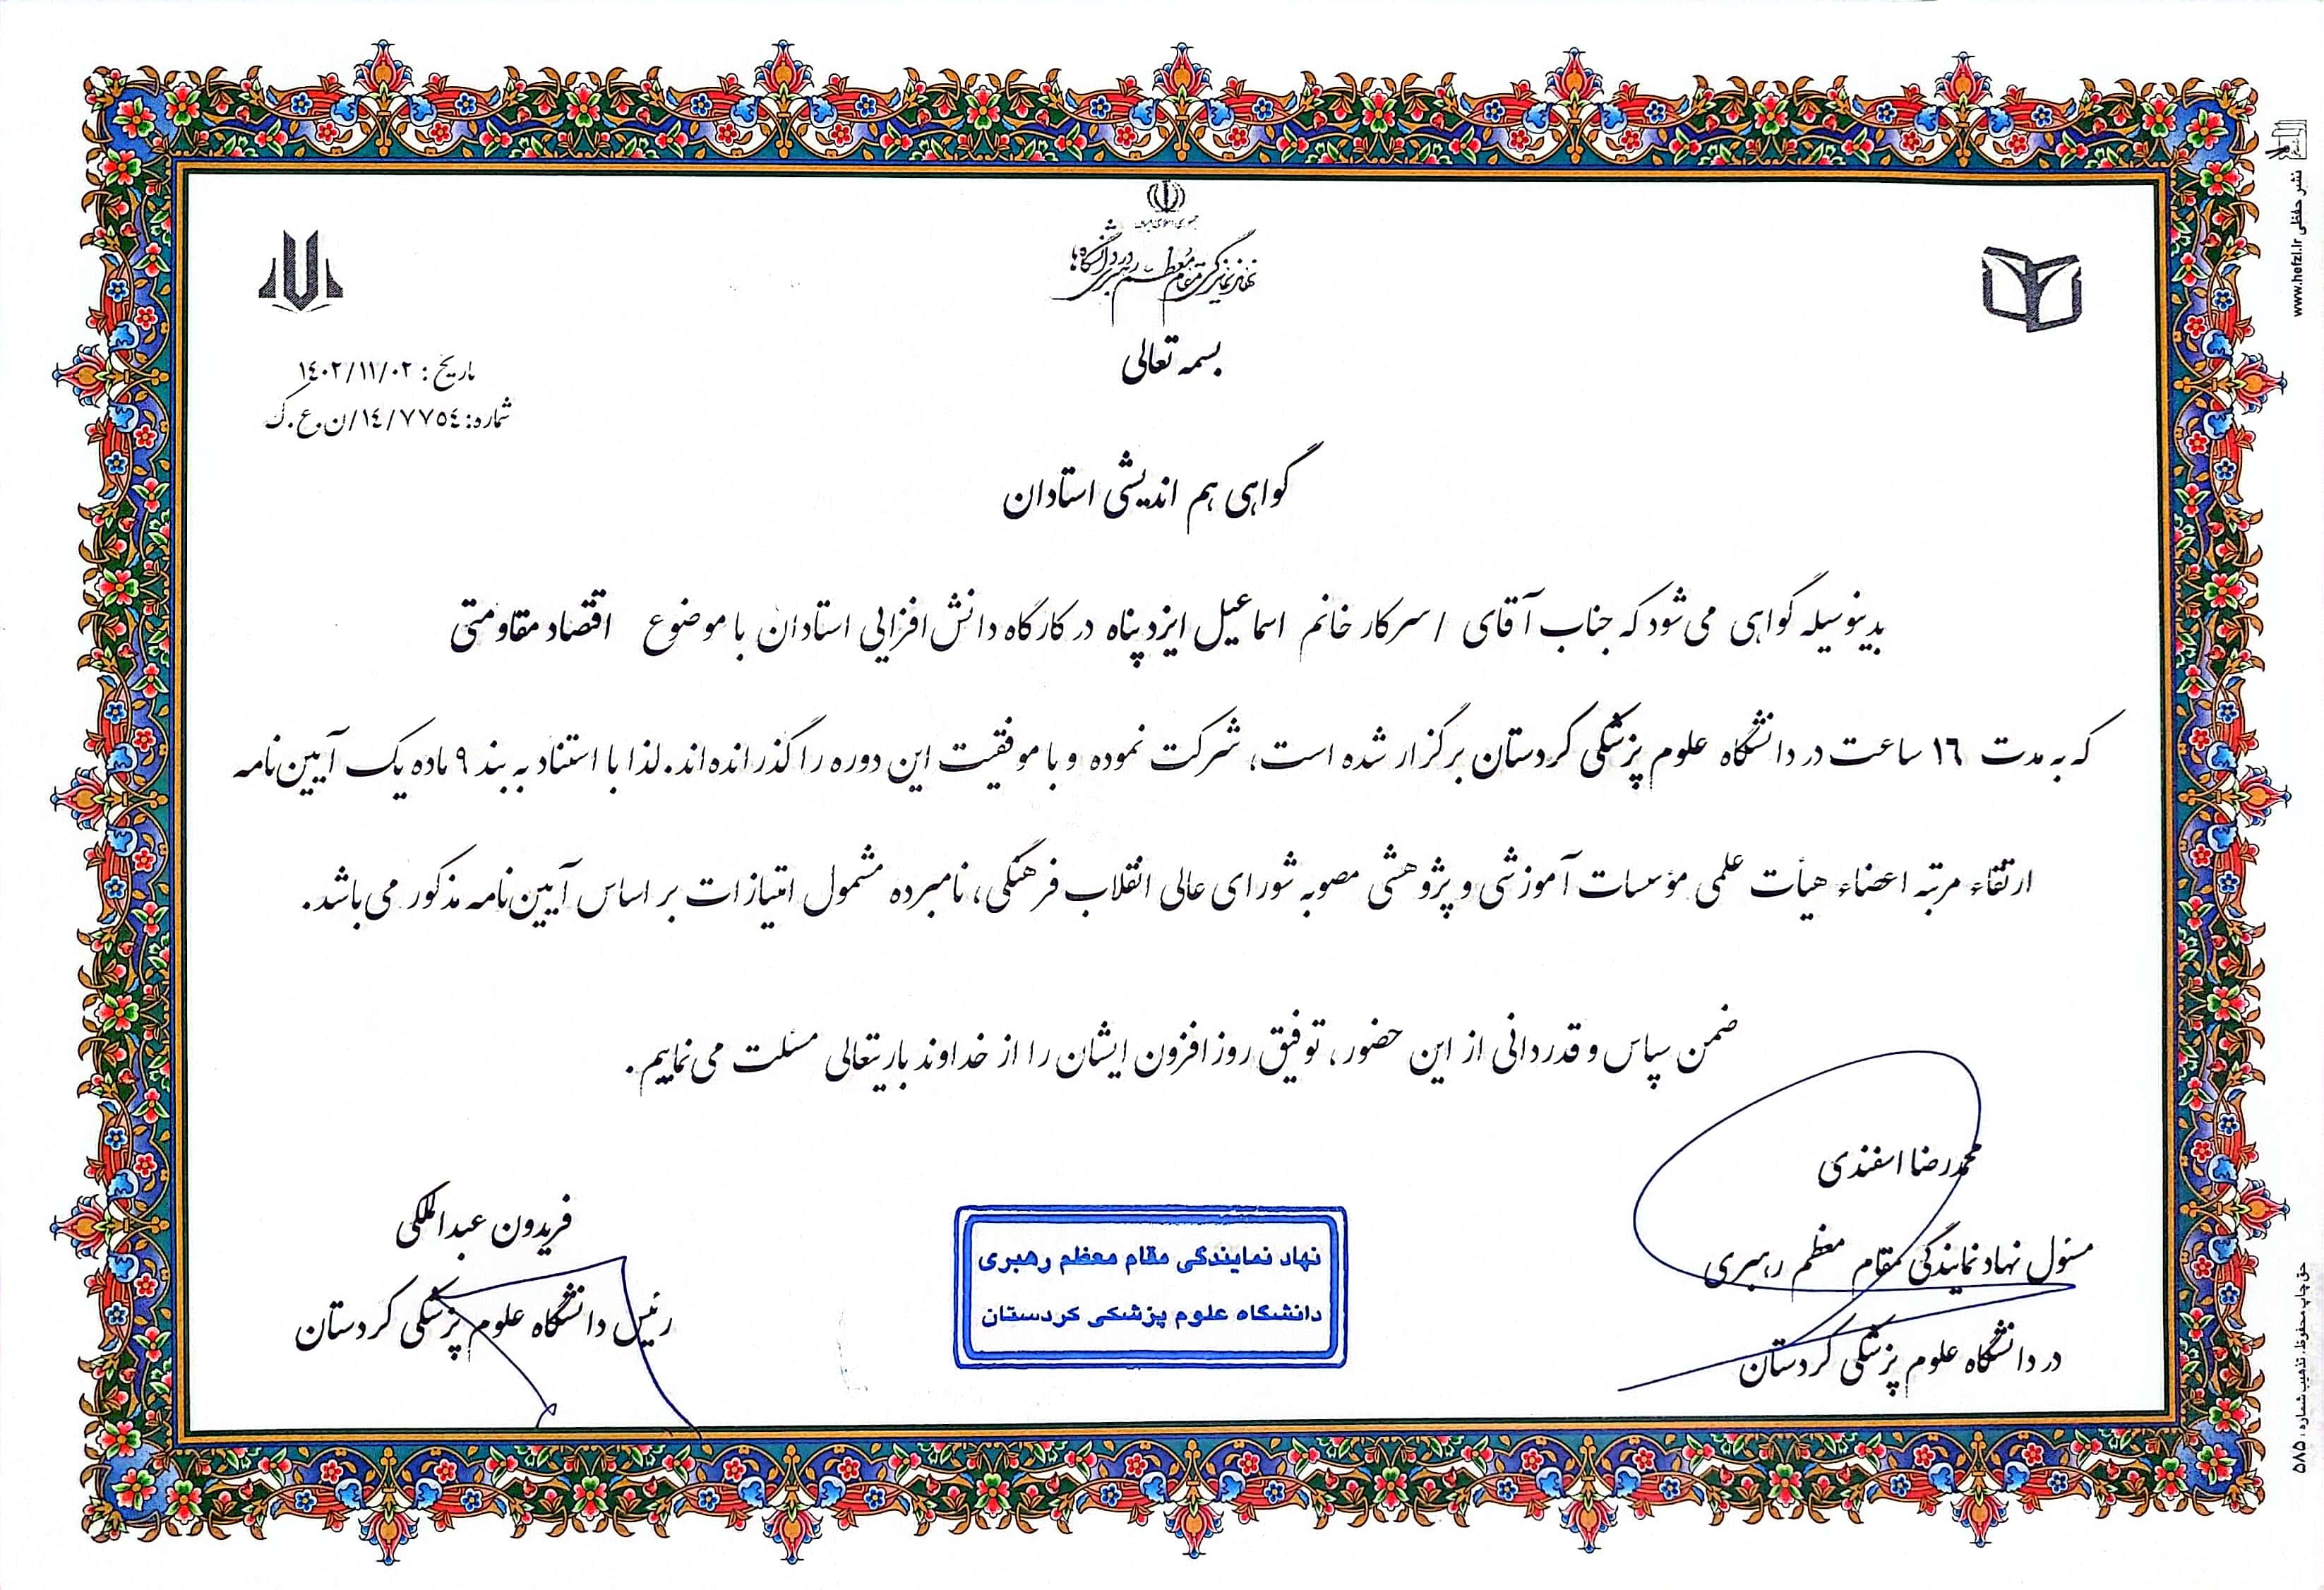 جمهوری اسلامی ایران
نهاد نمایندگی مقام معظم رهبری در دانشگاه‌ها
بسمه تعالی
تاریخ : ١٤٠٢/١١/٠٢
شماره: ١٤/٧٧٥٤/ن.ع.ک
گواهی هم اندیشی استادان
بدینوسیله گواهی می‌شود که جناب آقای / سرکار خانم اسماعیل ایزدپناه در کارگاه دانش‌افزایی استادان با موضوع اقتصاد مقاومتی
که به مدت ١٦ ساعت در دانشگاه علوم پزشکی کردستان برگزار شده است، شرکت نموده و با موفقیت این دوره را گذرانده‌اند. لذا با استناد به بند ٩ ماده یک آیین‌نامه
ارتقاء مرتبه اعضاء هیأت علمی مؤسسات آموزشی و پژوهشی مصوبه شورای عالی انقلاب فرهنگی، نامبرده مشمول امتیازات بر اساس آیین‌نامه مذکور می‌باشد.
ضمن سپاس و قدردانی از این حضور، توفیق روز افزون ایشان را از خداوند باریتعالی مسئلت می‌نماییم.
محمدرضا اسفندی
مسئول نهاد نمایندگی مقام معظم رهبری
در دانشگاه علوم پزشکی کردستان
نهاد نمایندگی مقام معظم رهبری
دانشگاه علوم پزشکی کردستان
فریدون عبدالملکی
رئیس دانشگاه علوم پزشکی کردستان
نشر حفظی www.hefzi.ir
حق چاپ محفوظ. تذهیب شماره ۵۸۵۰